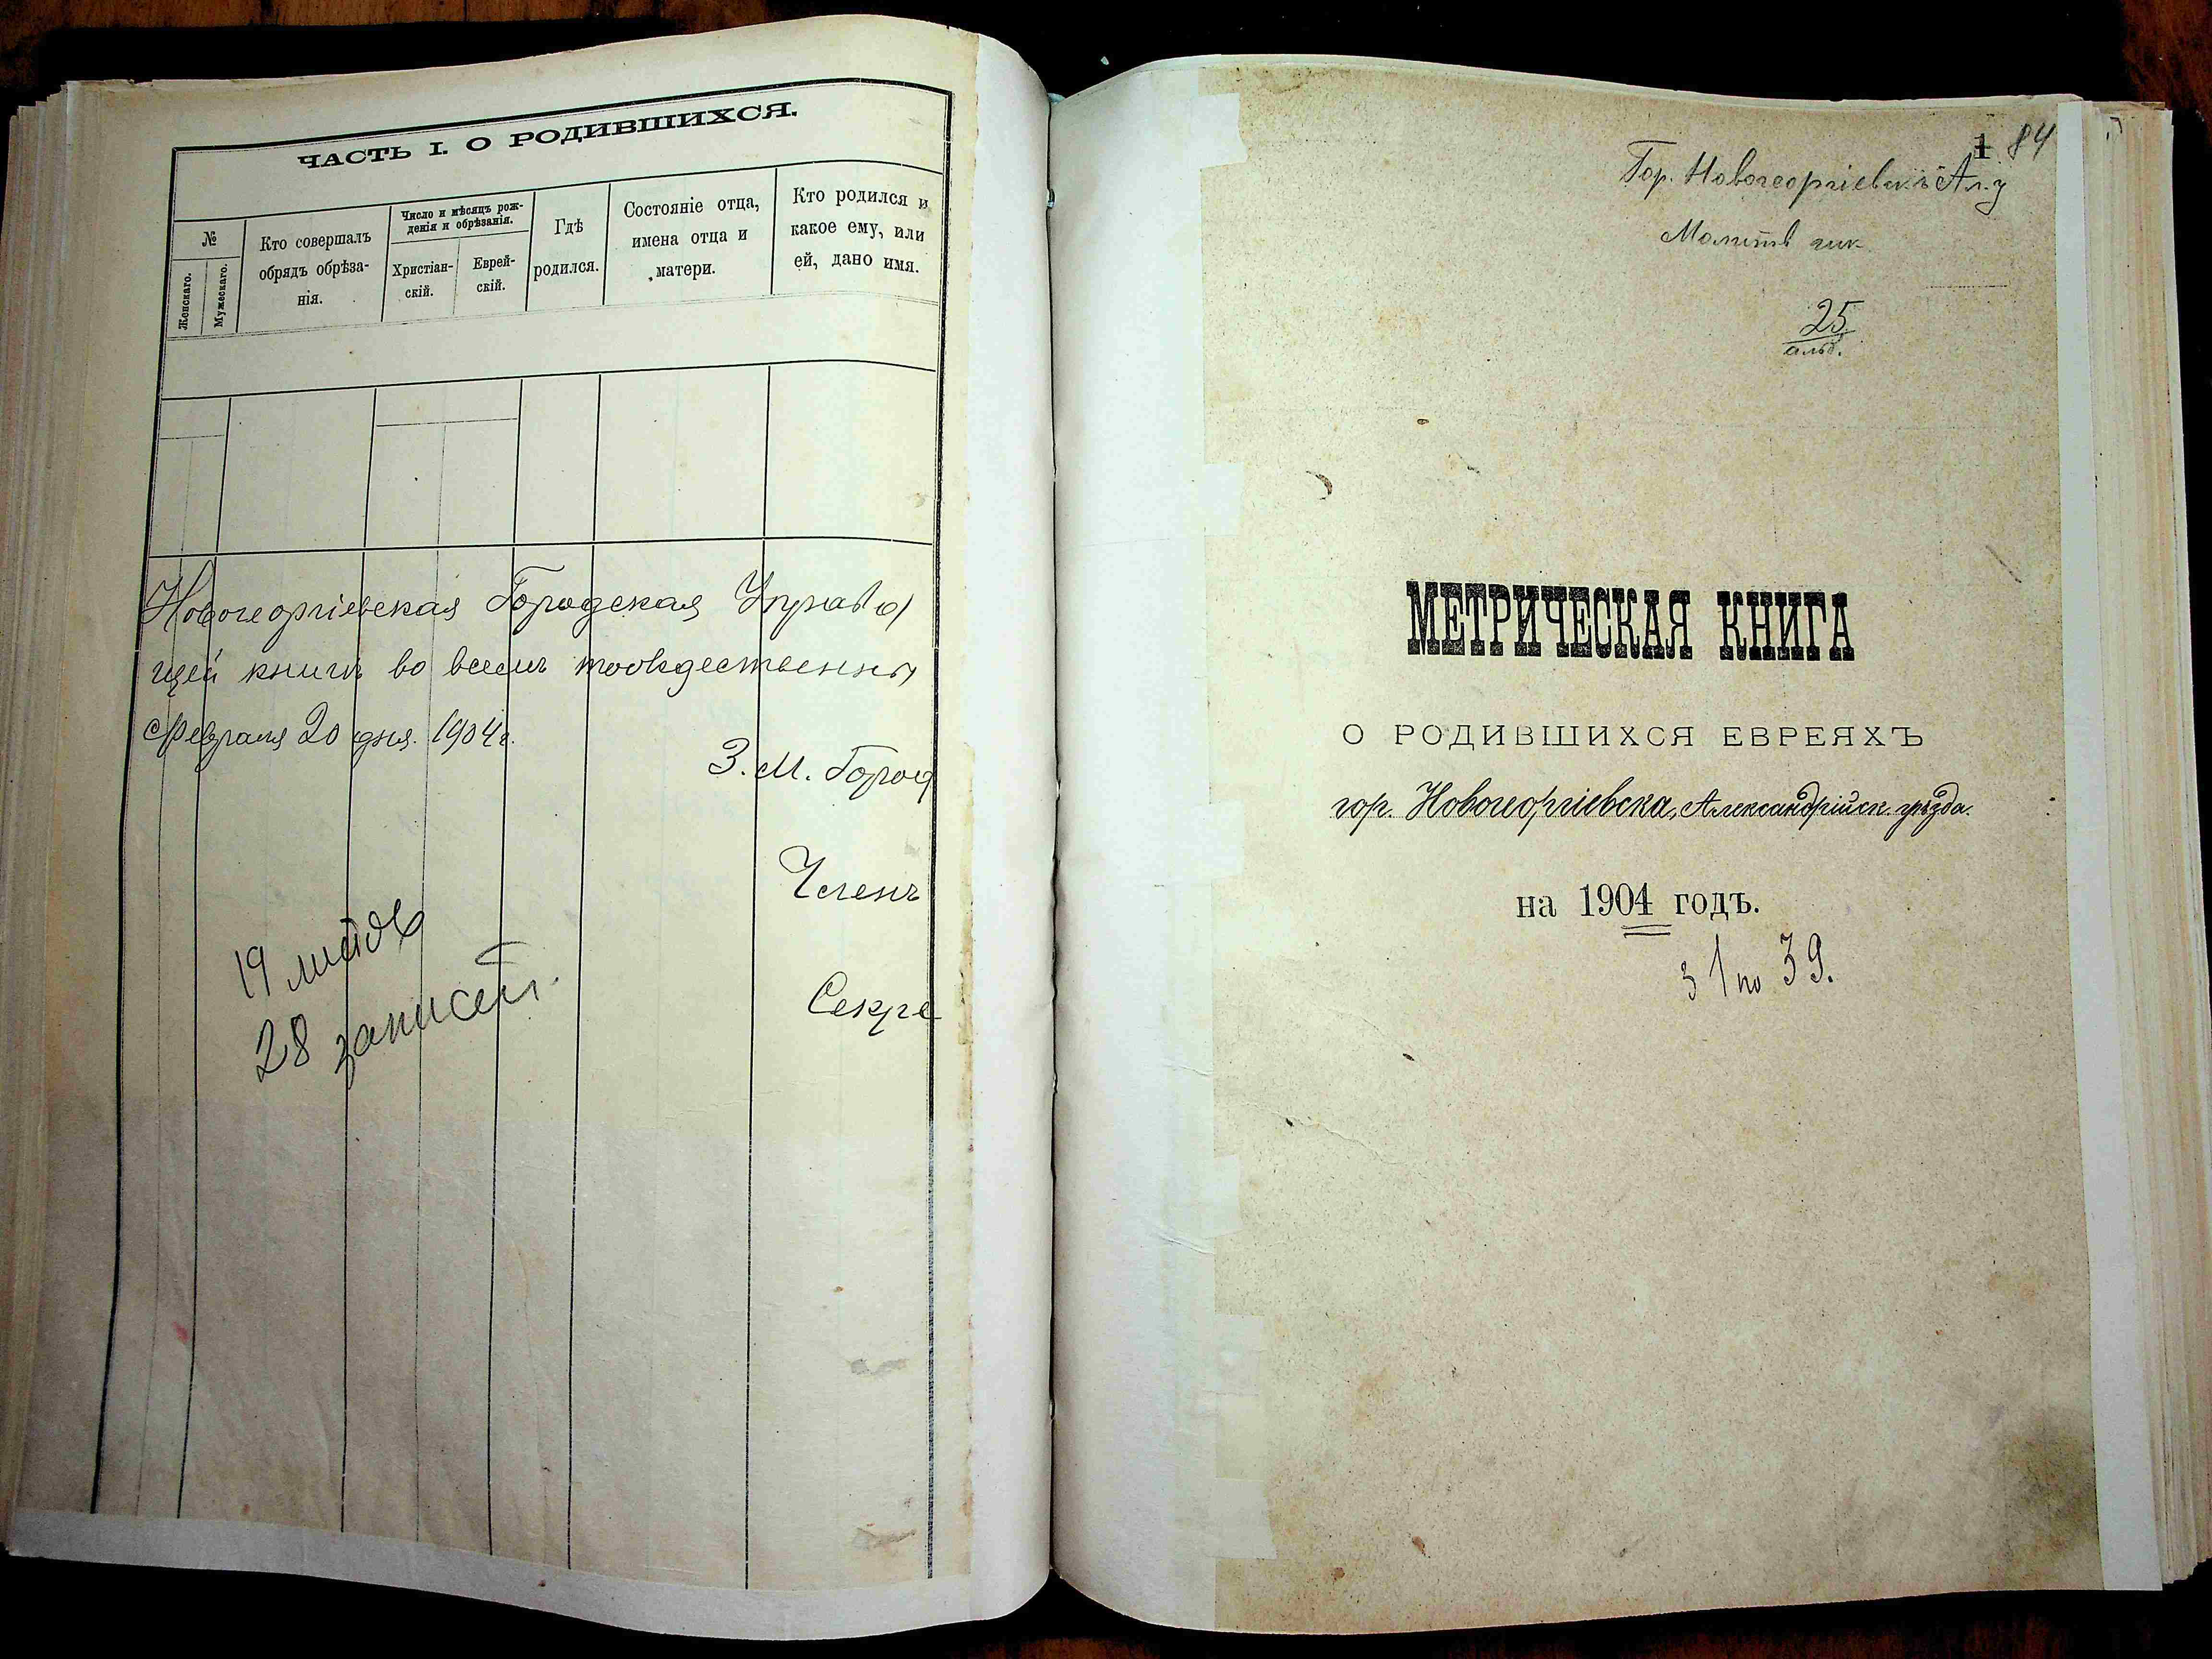 ЧАСТЬ I. О РОДИВШИХСЯ.
№
Женскаго.
Мужескаго.
Кто совершалъ
обрядъ обрѣза-
нія.
Число и мѣсяцъ рож-
денія и обрѣзанія.
Христіан-
скій.
Еврей-
скій.
Гдѣ
родился.
Состояніе отца,
имена отца и
матери.
Кто родился и
какое ему, или
ей, дано имя.
Новогеоргіевская Городская Управа
щей книгѣ во всемъ тождественны
Февраля 20 дня. 1904 г.
З. М. Город
Членъ
Секре
19 листов
28 записей.
1 84
Гор. Новогеоргіевскъ Ал. у
25
МЕТРИЧЕСКАЯ КНИГА
О РОДИВШИХСЯ ЕВРЕЯХЪ
гор. Новогеоргіевска, Александрійск. уѣзда.
на 1904 годъ.
з 1 по 39.